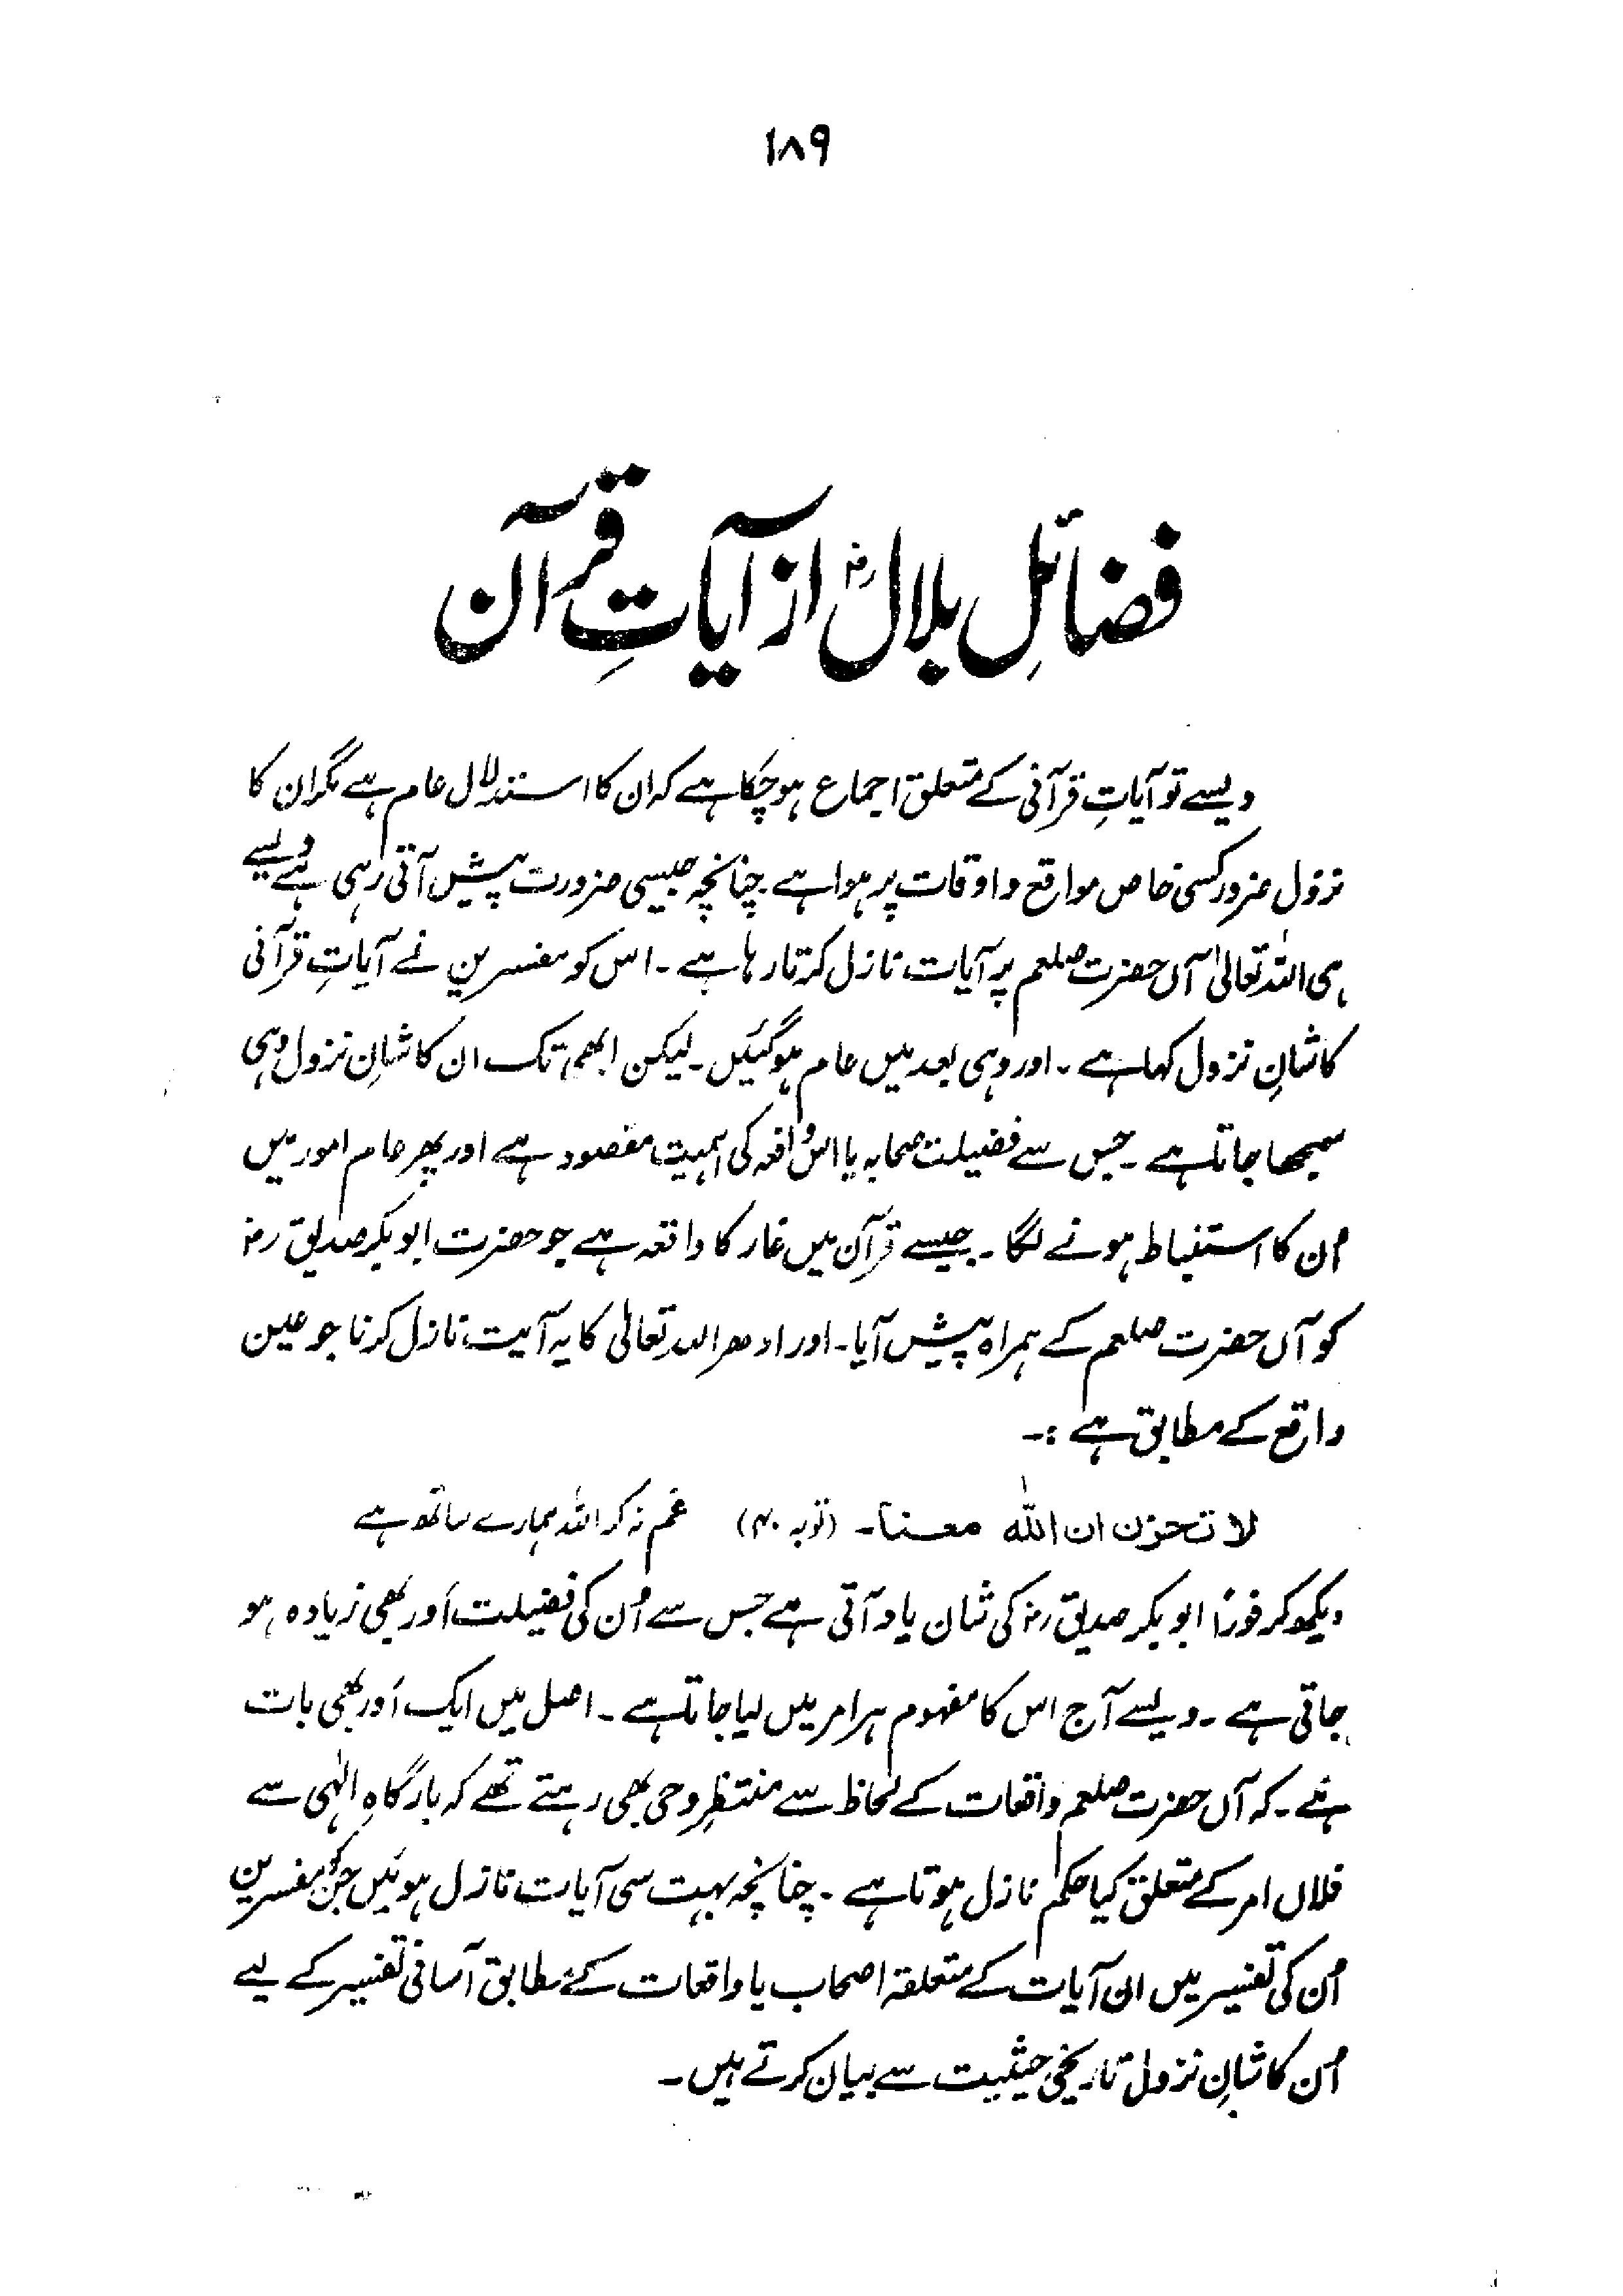 ۱۸۹
فضائلِ بلالؓ از آیاتِ قرآن
ویسے تو آیاتِ قرآنی کے متعلق اجماع ہو چکا ہے کہ ان کا استدلال عام ہے مگر ان کا
نزول ضرور کسی خاص مواقع و اوقات پر ہوا ہے چنانچہ جیسی ضرورت پیش آتی رہی ہے ویسے
ہی اللہ تعالیٰ آں حضرت صلعم پر آیات نازل کرتا رہا ہے۔ اس کو مفسرین نے آیاتِ قرآنی
کا شانِ نزول کہا ہے۔ اور وہی بعد میں عام ہو گئیں۔ لیکن ابھی تک ان کا شانِ نزول وہی
سمجھا جاتا ہے۔ جس سے فضیلت صحابہ یا اُس واقعہ کی اہمیت مقصود ہے اور پھر عام امور میں
اُن کا استنباط ہونے لگا۔ جیسے قرآن میں غار کا واقعہ ہے جو حضرت ابوبکر صدیق رضؓ
کو آں حضرت صلعم کے ہمراہ پیش آیا۔ اور ادھر اللہ تعالیٰ کا یہ آیت نازل کرنا جو عین
واقع کے مطابق ہے :۔
لا تحزن ان اللہ معنا۔ (توبہ ۴۰) غم نہ کر اللہ ہمارے ساتھ ہے
دیکھو کر فوراً ابوبکر صدیق رضؓ کی شان یاد آتی ہے جس سے اُن کی فضیلت اَور بھی زیادہ ہو
جاتی ہے۔ ویسے آج اس کا مفہوم ہر امر میں لیا جاتا ہے۔ اصل میں ایک اَور بھی بات
ہے۔ کہ آں حضرت صلعم واقعات کے لحاظ سے منتظرِ وحی بھی رہتے تھے کہ بارگاہِ الٰہی سے
فلاں امر کے متعلق کیا حکم نازل ہوتا ہے۔ چنانچہ بہت سی آیات نازل ہوئیں جن کو مفسرین
اُن کی تفسیر میں ان آیات کے متعلقہ اصحاب یا واقعات کے مطابق آسانی تفسیر کے لیے
اُن کا شانِ نزول تاریخی حیثیت سے بیان کرتے ہیں۔